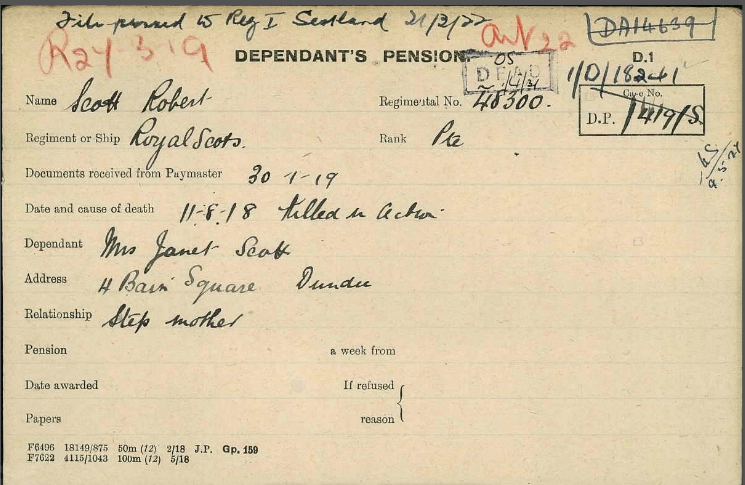 File passed to Reg I Scotland 21/2/22
R 24-3-19
DA14639
DEPENDANT'S PENSION.
D.1
DEAD
1/D/18241
Name Scott Robert
Regimental No. 48300.
Case No.
D.P. 1/419/S.
Regiment or Ship Royal Scots.
Rank Pte
Documents received from Paymaster 30-1-19
Date and cause of death 11-8-18 Killed in Action
Dependant Mrs Janet Scott
Address 4 Bain Square Dundee
Relationship Step mother
Pension a week from
Date awarded If refused
Papers reason
F6496 18149/875 50m (12) 2/18 J.P. Gp. 159
F7622 4115/1043 100m (12) 5/18